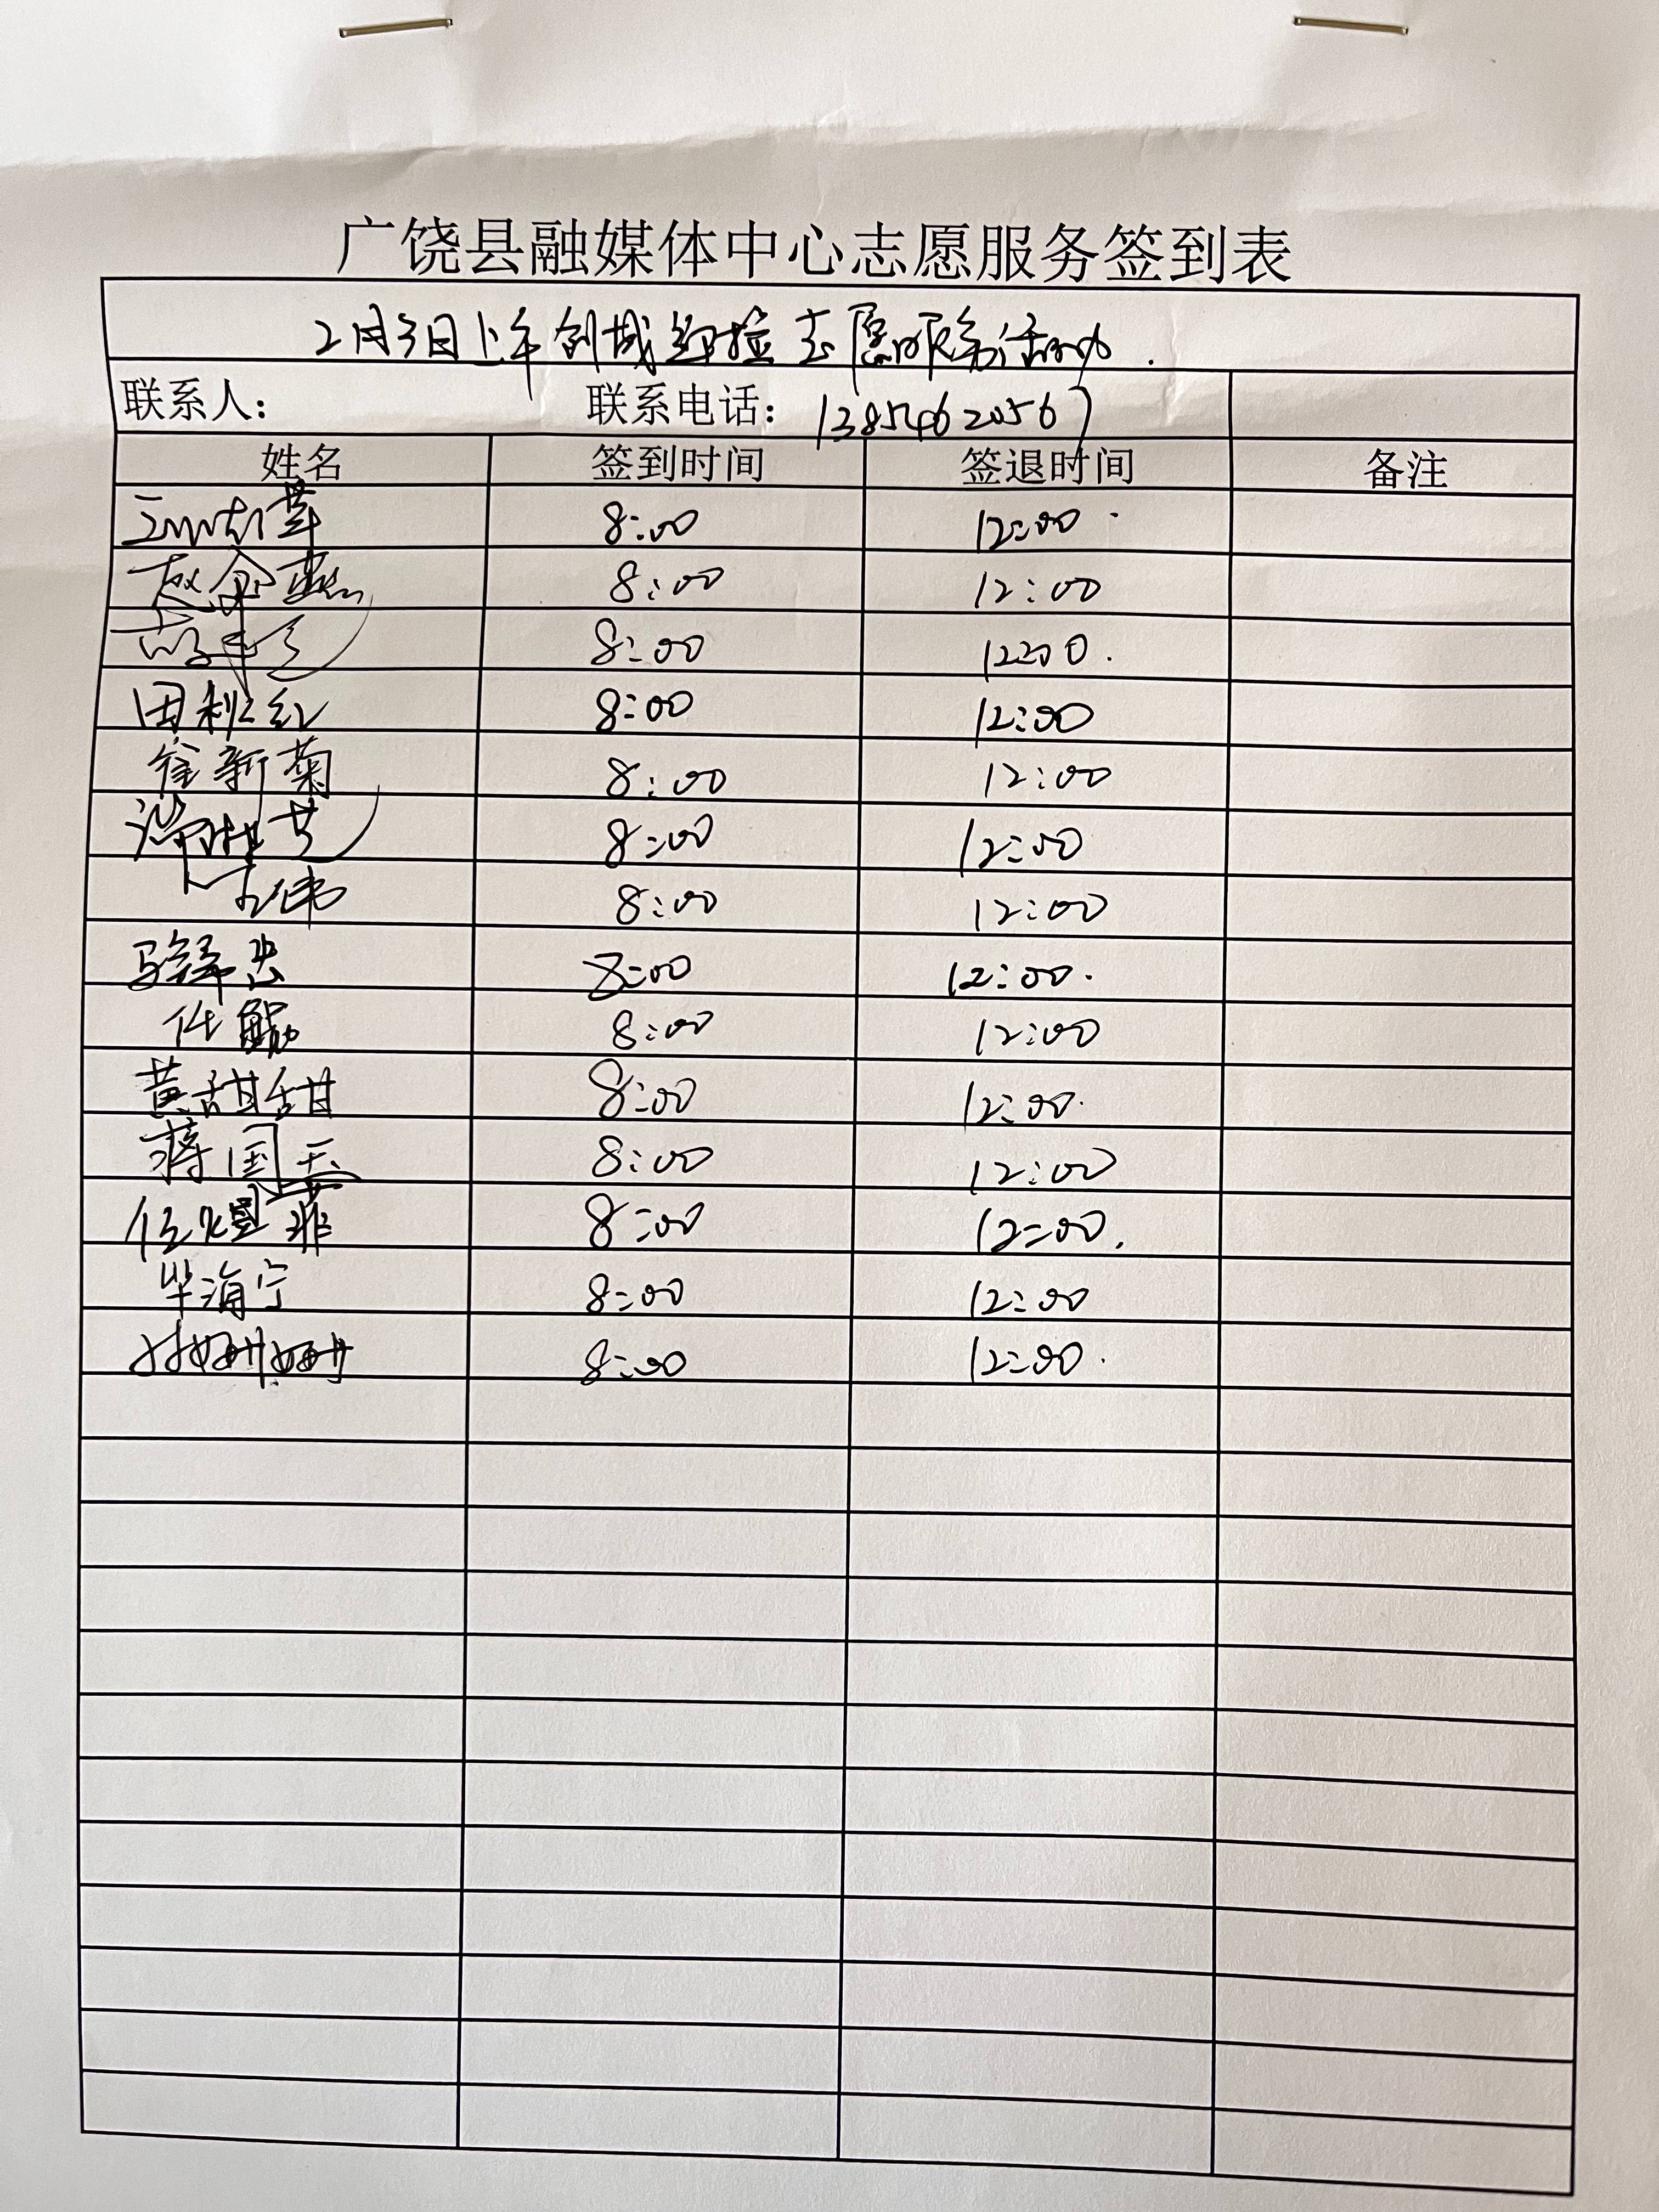 广饶县融媒体中心志愿服务签到表
2月3日上午创城 志愿服务活动.
联系人： 联系电话：13854620567
姓名 签到时间 签退时间 备注
8:00 12:00
赵金燕 8:00 12:00
8:00 12:00.
田秋红 8:00 12:00
崔新菊 8:00 12:00
8:00 12:00
8:00 12:00
8:00 12:00.
任毅 8:00 12:00
黄甜甜 8:00 12:00.
蒋国 8:00 12:00
任煜菲 8:00 12:00.
毕海宁 8:00 12:00
姗姗 8:00 12:00.